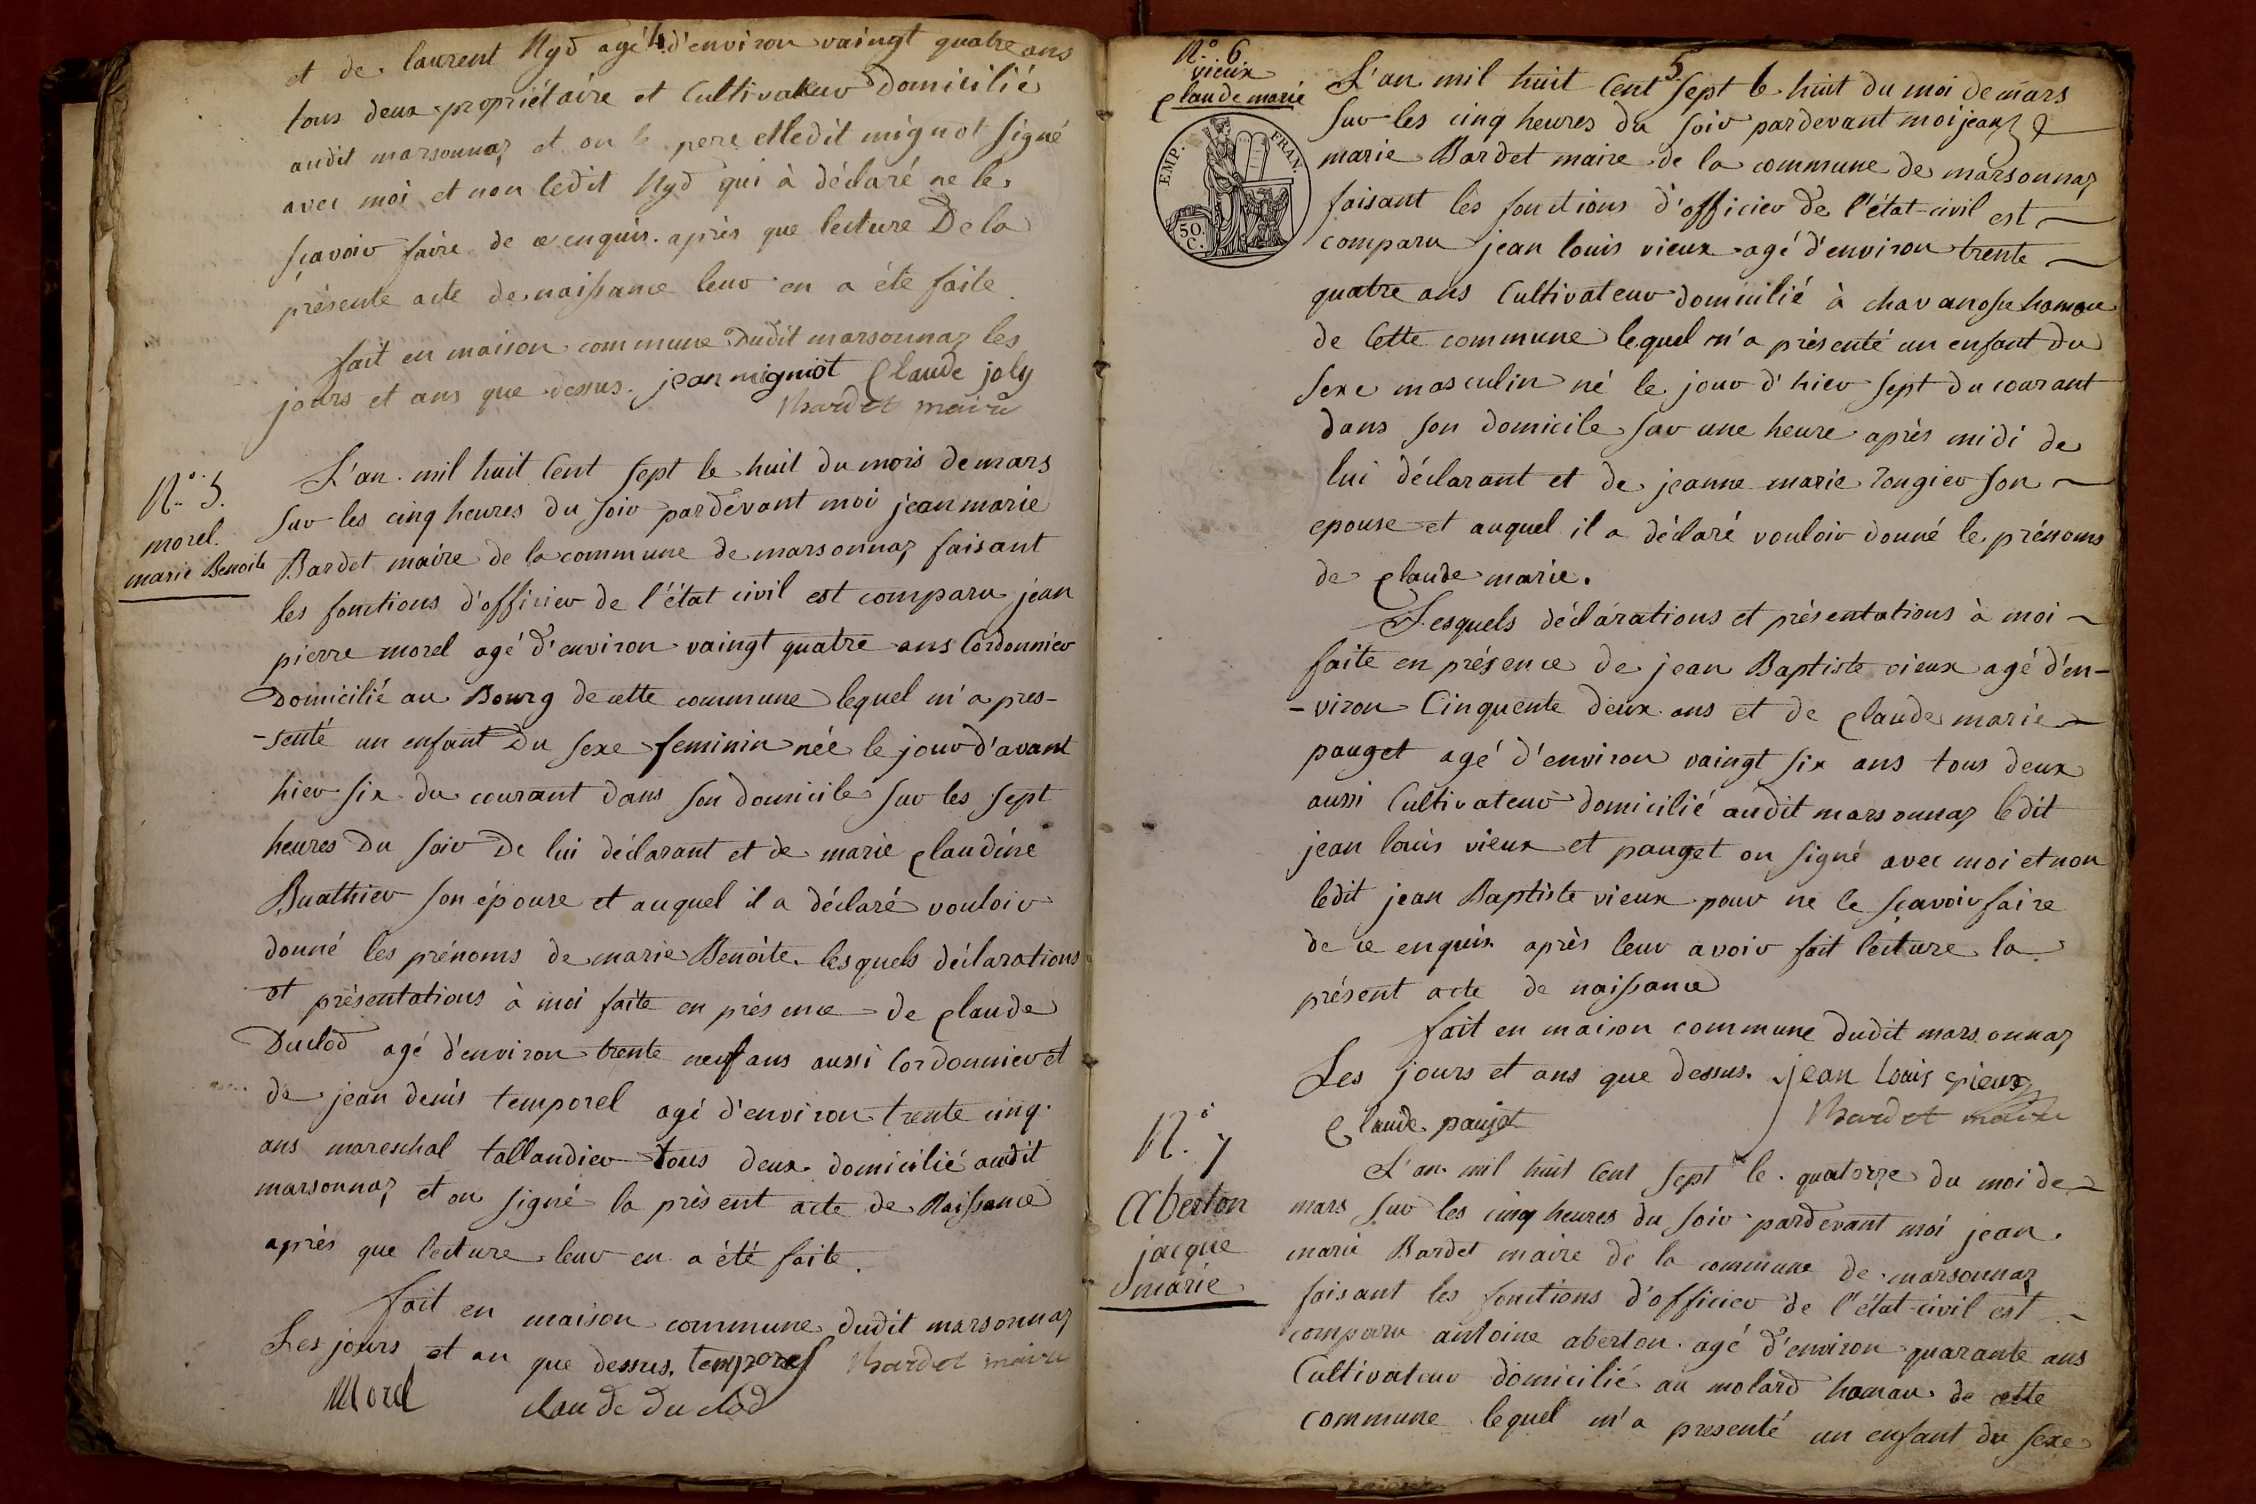 et de laurent Nyd agé d'environ vaingt quatre ans
tous deux propriétaire et Cultivateur Domicilié
audit marsonnaz et on le pere et ledit mignot signé
avec moi et non ledit Nyd qui à déclaré ne le
sçavoir faire de ce enquis. après que lecture De la
présente acte de naissance leur en a été faite
fait en maison commune Dudit marsonnaz les
jours et ans que dessus. jean migniot Claude joly
Bardet maire
N.° 5.
morel.
marie Benoite
L'an mil huit Cent sept le huit du mois de mars
sur les cinq heures du soir pardevant moi jean marie
Bardet maire de la commune de marsonnaz faisant
les fonctions d'officier de l'état civil est comparu jean
pierre morel agé d'environ vaingt quatre ans Cordonnier
Domicilié au Bourg de cette commune lequel m'a pres-
-senté un enfant Du sexe feminin née le jour d'avant
hier six du courant dans son domicile sur les sept
heures Du soir De lui déclarant et de marie claudine
Buathier son épouse et auquel il a déclaré vouloir
donné les prénoms de marie Benoite. lesquels déclarations
et présentations à moi faite en présence de claude
Duclod agé d'environ trente neuf ans aussi Cordonnier et
de jean denis temporel agé d'environ trente cinq
ans mareschal tallandier tous deux domicilié audit
marsonnaz et on signé la présent acte de Naissance
après que lecture leur en a été faite.
fait en maison commune dudit marsonnaz
Les jours et an que dessus. temporel Bardet maire
Morel claude duclod
N.° 6
vieux
claude marie
EMP. FRAN.
50. C.
5
L'an mil huit Cent sept le huit du moi de mars
sur les cinq heures du soir pardevant moi jean
marie Bardet maire de la commune de marsonnaz
faisant les fonctions d'officier de l'état-civil est
comparu jean louis vieux agé d'environ trente
quatre ans Cultivateur domicilié à chavanosse hamau
de Cette commune lequel m'a présenté un enfant du
sexe masculin né le jour d'hier sept du courant
dans son domicile sur une heure après midi de
lui déclarant et de jeanne marie rongier son
epouse et auquel il a déclaré vouloir donné le prénoms
de claude marie.
Lesquels déclarations et présentations à moi
faite en présence de jean Baptiste vieux agé d'en-
-viron Cinquente deux ans et de claude marie
pauget agé d'environ vaingt six ans tous deux
aussi Cultivateur domicilié audit marsonnaz ledit
jean louis vieux et pauget on signé avec moi et non
ledit jean Baptiste vieux pour ne le sçavoir faire
de ce enquis après leur avoir fait lecture la
présent acte de naissance
fait en maison commune dudit marsonnaz
Les jours et ans que dessus. jean Louis vieux
Claude paujet Bardet maire
N.° 7
Aberton
jacque
marie
L'an mil huit Cent sept le quatorze du moi de
mars sur les cinq heures du soir pardevant moi jean
marie Bardet maire de la commune de marsonnaz
faisant les fonctions d'officier de l'état-civil est
comparu antoine aberton agé d'environ quarante ans
Cultivateur domicilié au molard hamau de cette
commune lequel m'a presenté un enfant du sexe